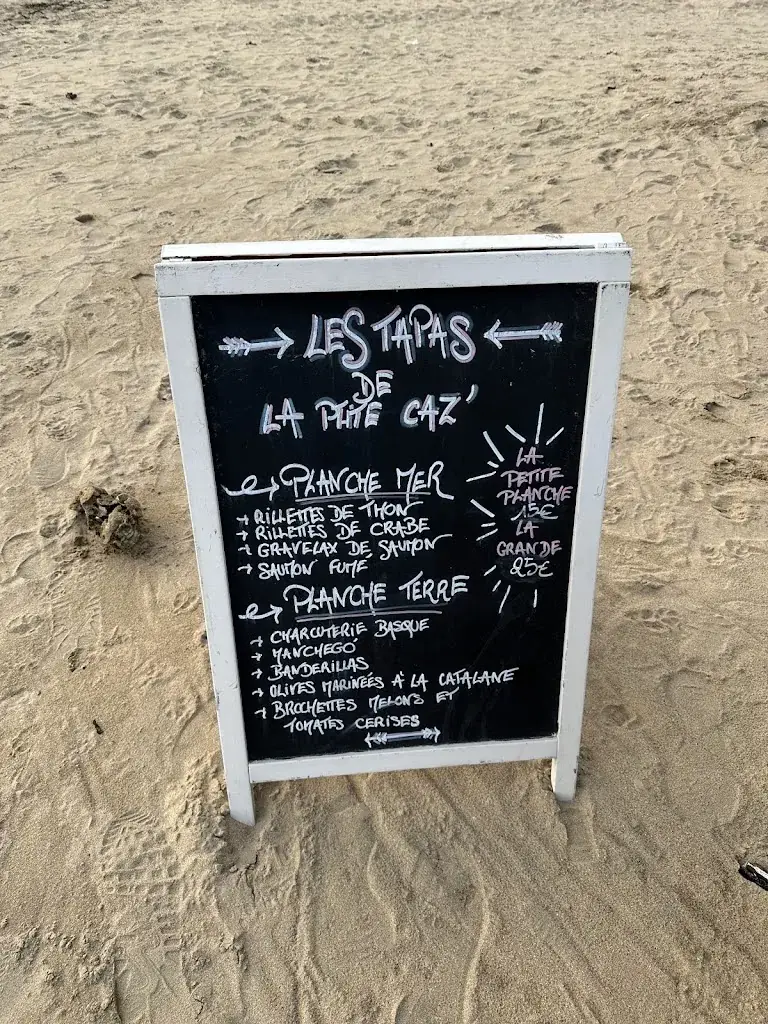 LES TAPAS
DE
LA PTITE CAZ'
PLANCHE MER
RILLETTES DE THON
RILLETTES DE CRABE
GRAVELAX DE SAUMON
SAUMON FUME
PLANCHE TERRE
CHARCUTERIE BASQUE
MANCHEGO
BANDERILLAS
OLIVES MARINEÉS À LA CATALANE
BROCHETTES MELONS ET
TOMATES CERISES
LA
PETITE
PLANCHE
15€
LA
GRANDE
25€